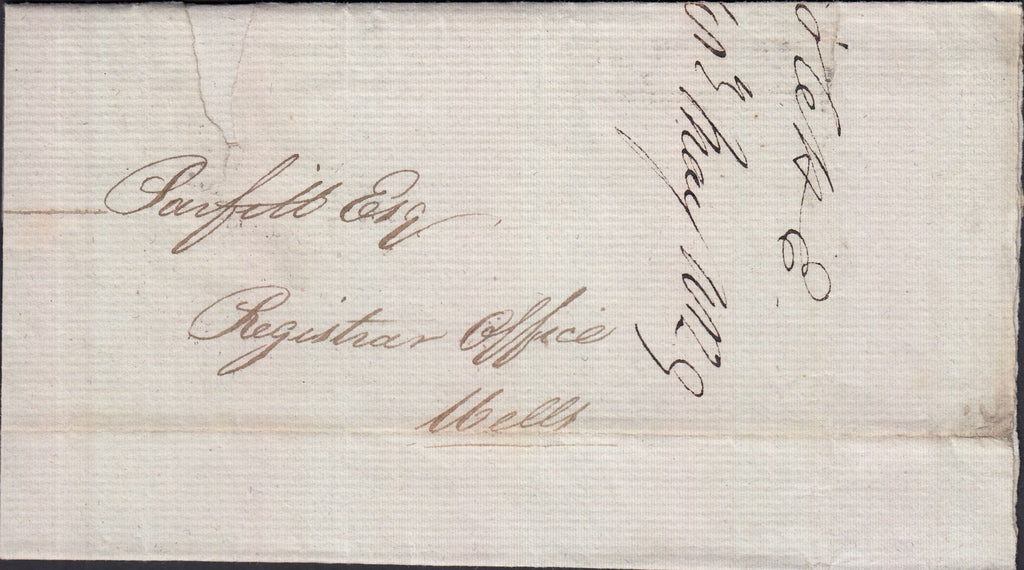 Parfitt Esq
Registrar Office
Wells
May 1829